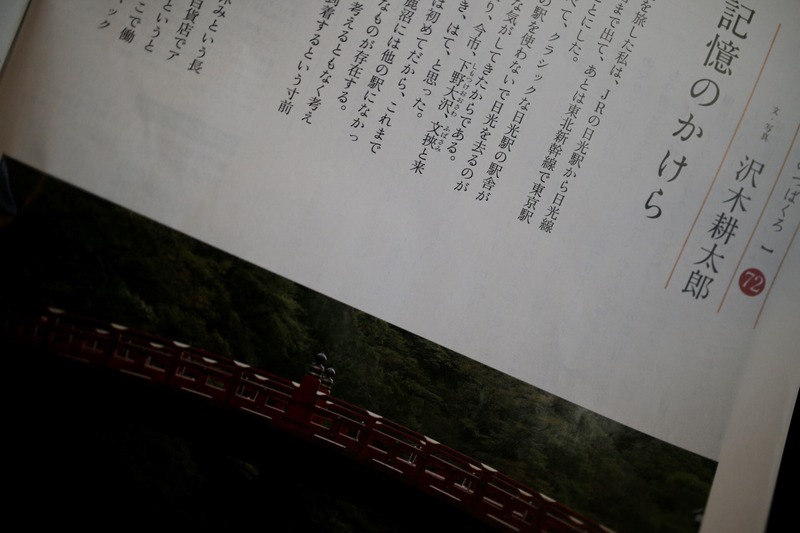 のつばくろ 72
文・写真 沢木耕太郎
記憶のかけら
を旅した私は、JRの日光駅から日光線
まで出て、あとは東北新幹線で東京駅
とにした。
て、クラシックな日光駅の駅舎が
の駅を使わないで日光を去るのが
な気がしてきたからである。
り、今市、下野大沢、文挾と来
き、はて、と思った。
は初めてだから、これまで
鹿沼には他の駅になかっ
なものが存在する。
考えるともなく考え
到着するという寸前
休みという長
百貨店でア
というと
こで働
ック